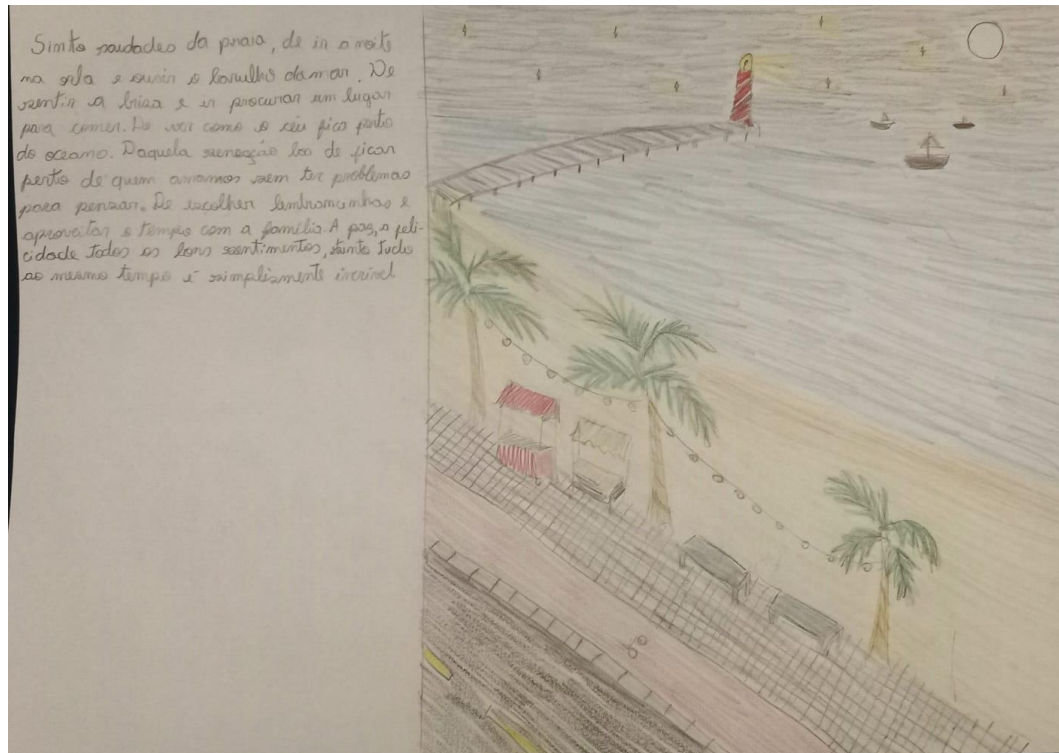 Sinto saudades da praia, de ir a noite
na orla e ouvir o barulho da mar. De
sentir a brisa e ir procurar um lugar
para comer. De ver como o céu fica perto
do oceano. Daquela sensação boa de ficar
perto de quem amamos sem ter problemas
para pensar. De escolher lembrancinhas e
aproveitar o tempo com a família. A paz, a feli-
cidade todos os bons sentimentos, sinto tudo
ao mesmo tempo é simplismente incrivel